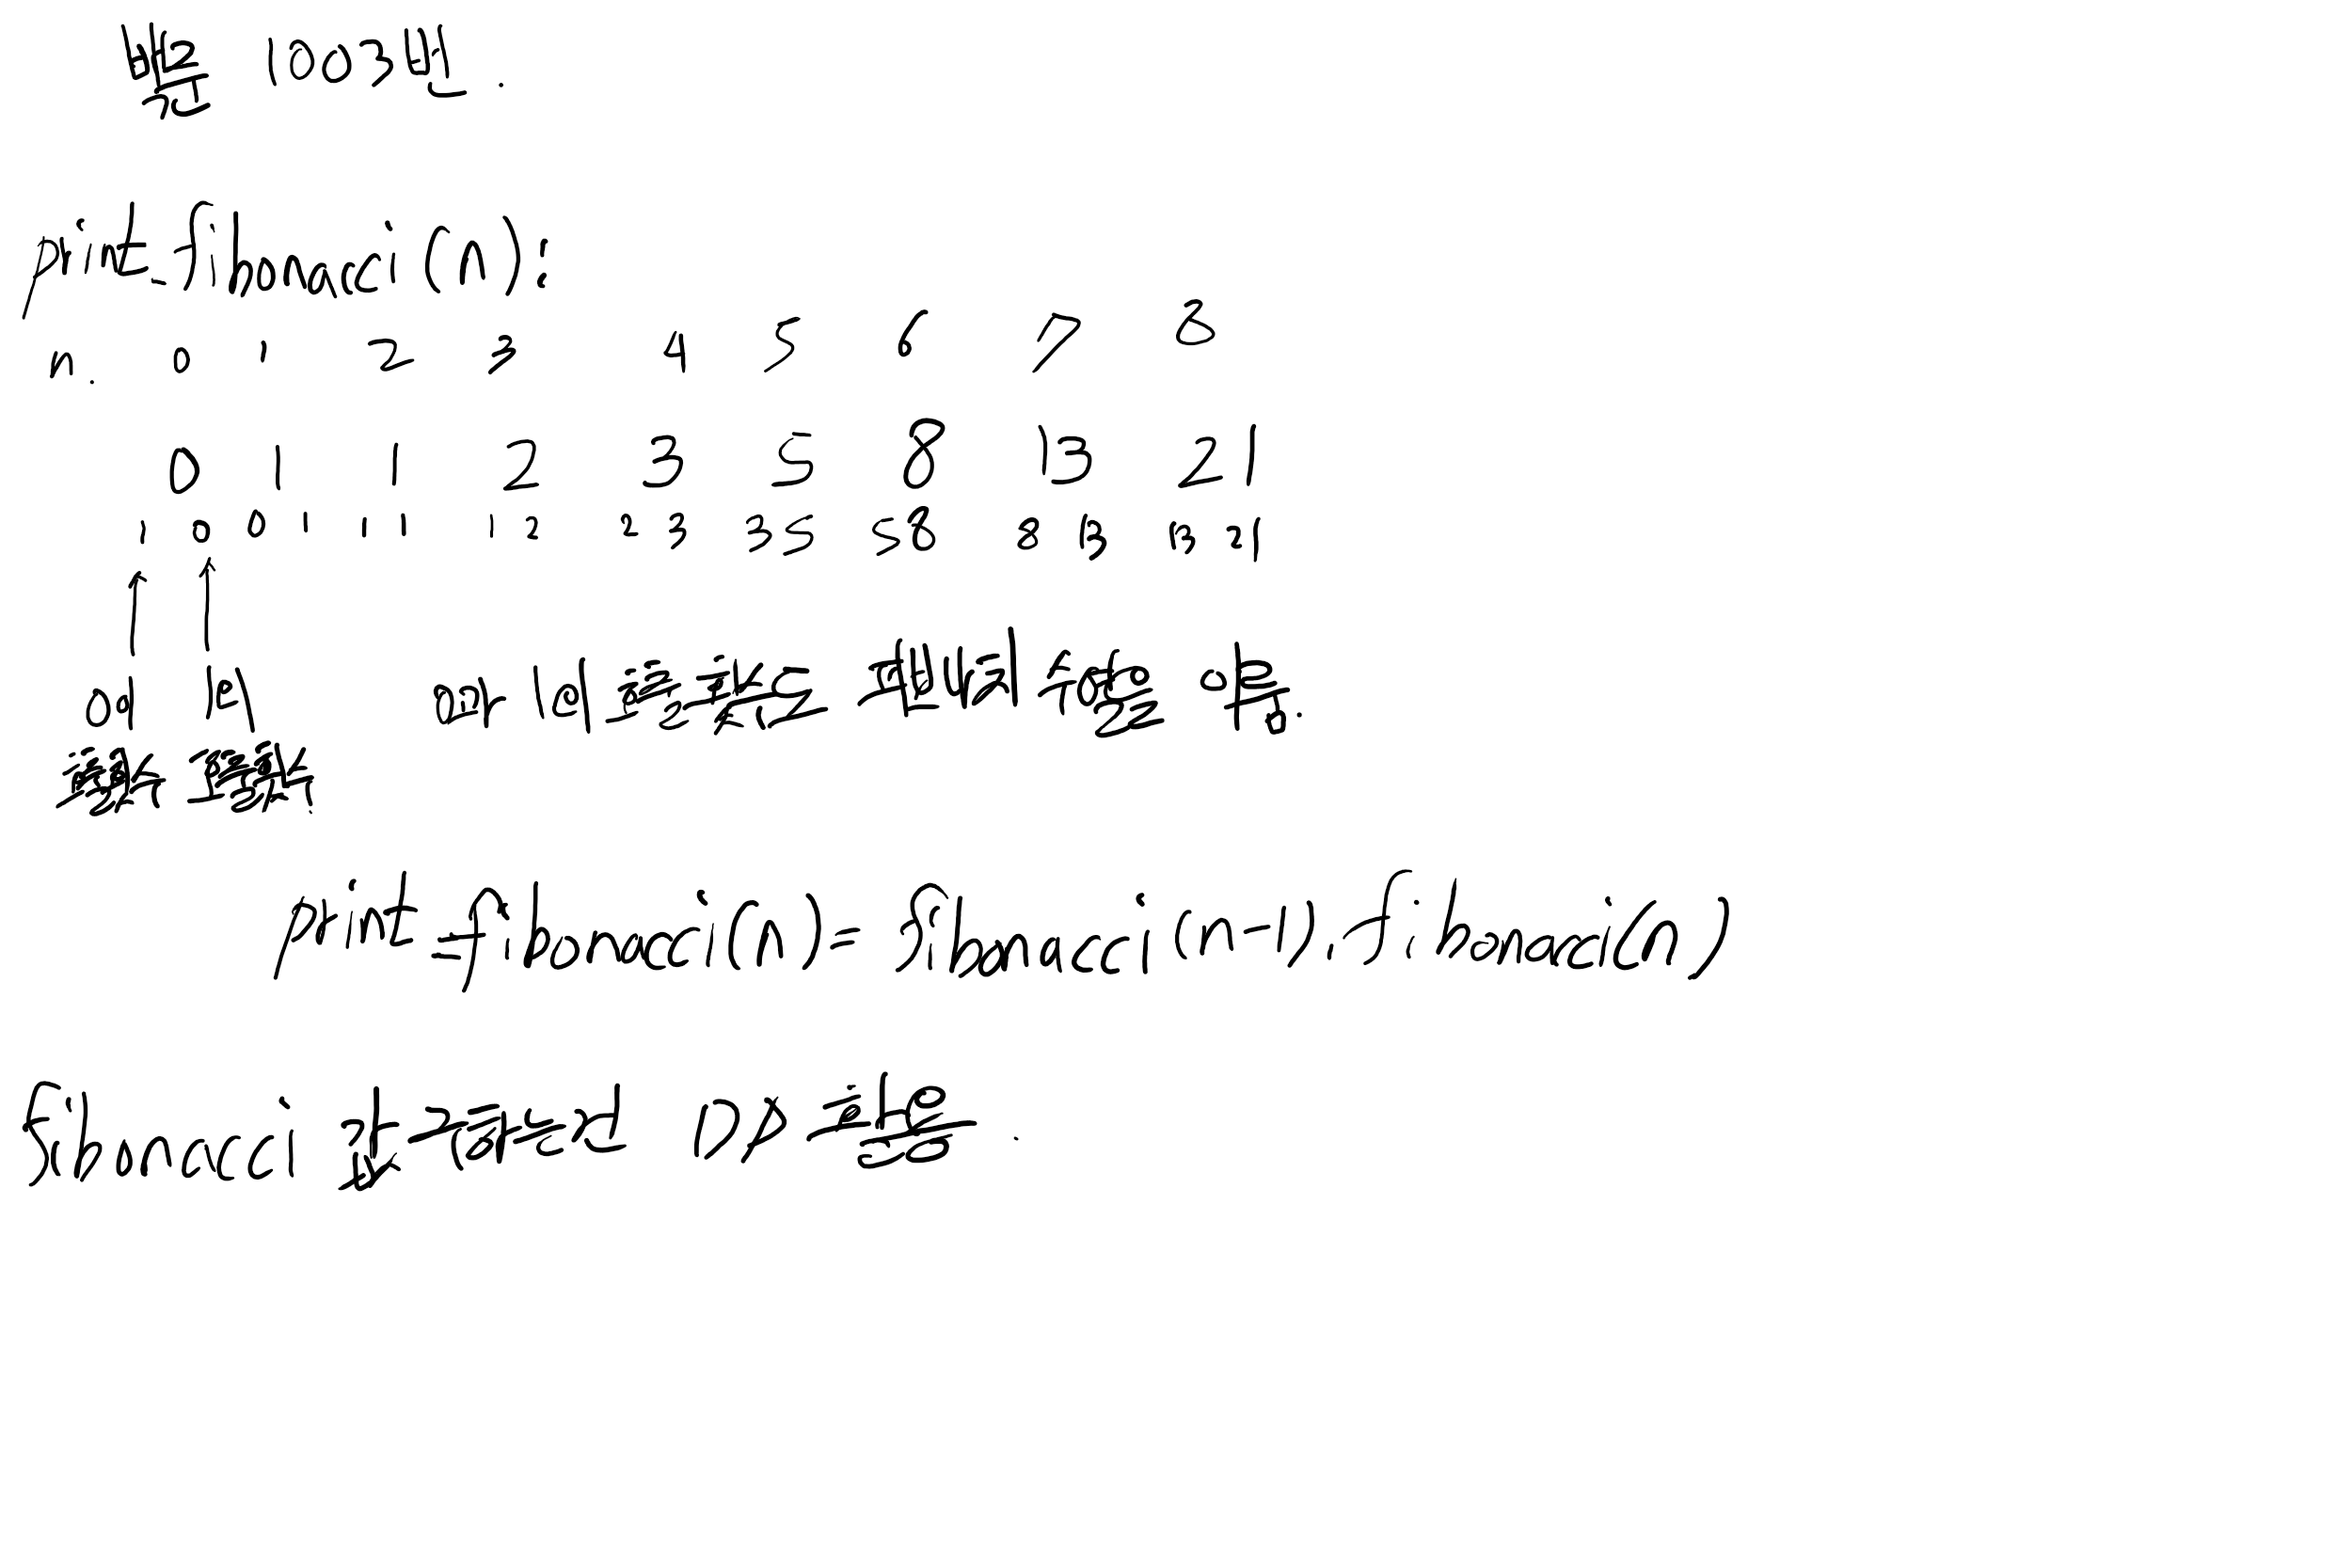 백준 1003번.
print_fibonacci(n):
n. 0 1 2 3 4 5 6 7 8
0 1 1 2 3 5 8 13 21
1 0 0 1 1 1 1 2 2 3 3 5 5 8 8 13 13 21
0의 1의 0과 1의 호출 횟수는 피보나치 수열을 이룸.
호출횟수 호출횟수
print_fibonacci(n) = fibonacci(n-1), fibonacci(n)
fibonacci 값 구하는거 DP 활용.